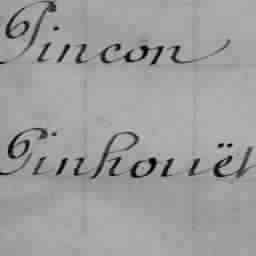 Pincon
Pinhouët